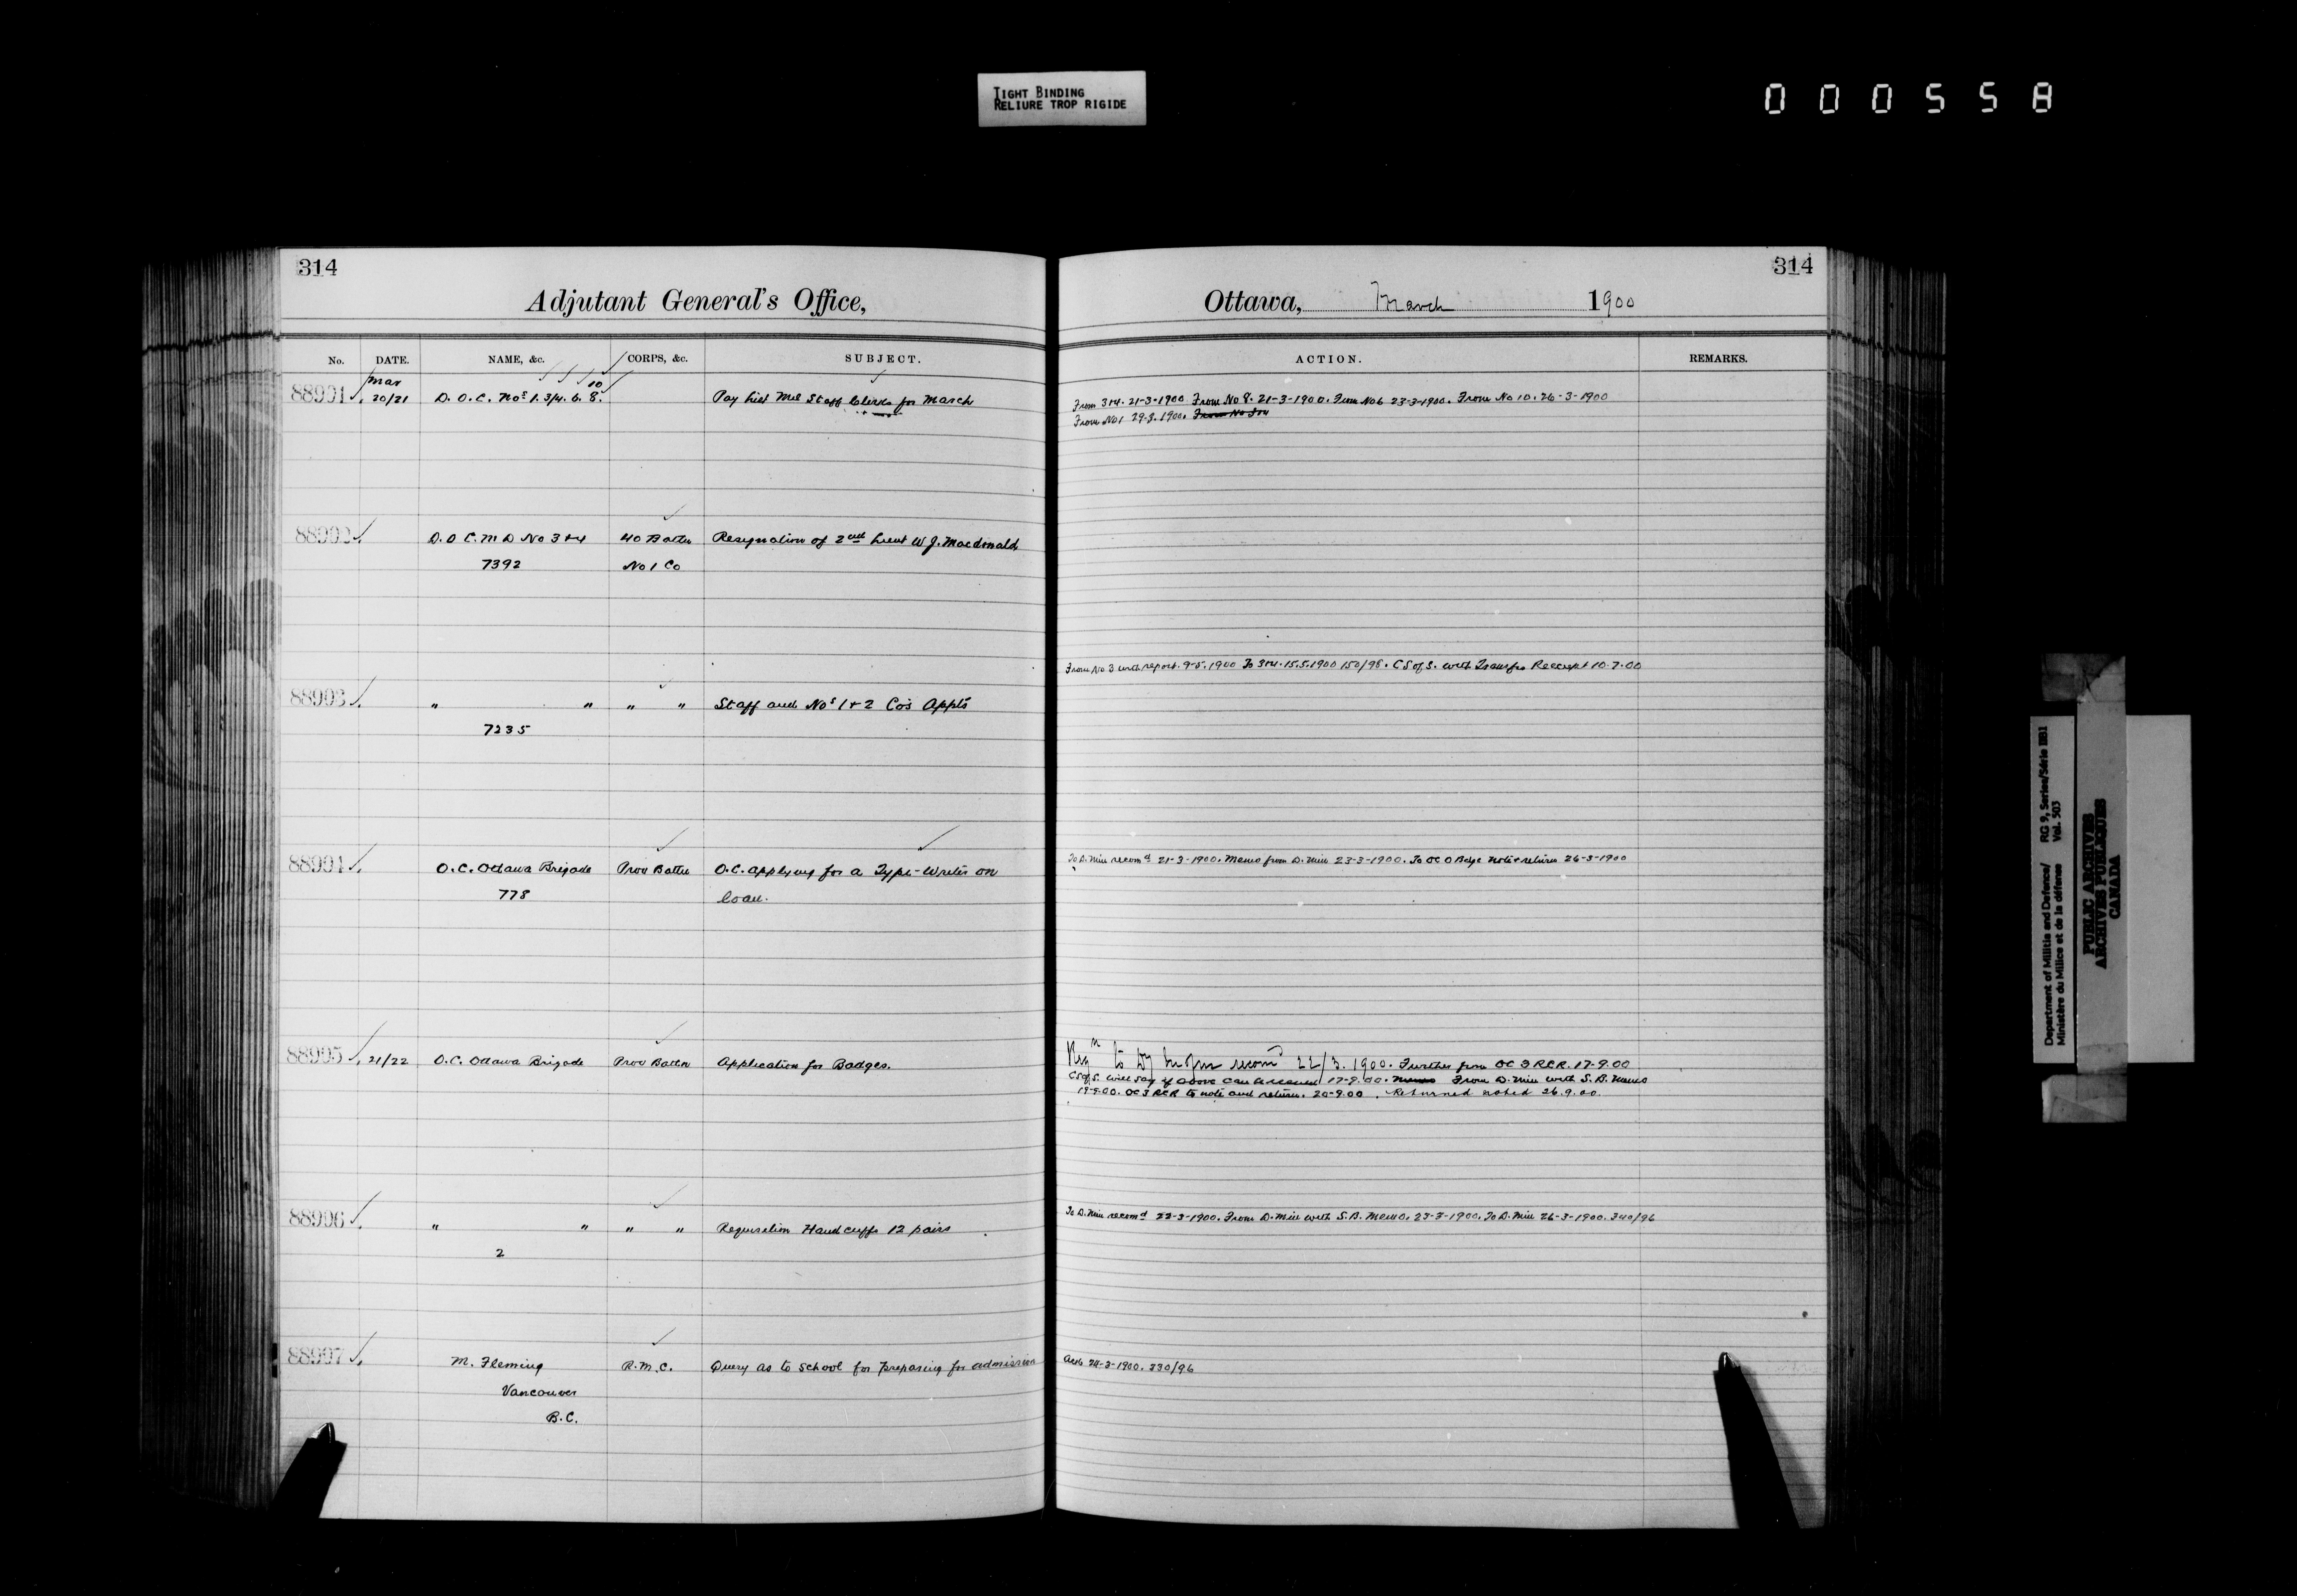 TIGHT BINDING
RELIURE TROP RIGIDE
000558
314
Adjutant General's Office,
No. DATE. NAME, &c. CORPS, &c. SUBJECT.
Mar 10
88991 20/21 D.O.C. Nos 1. 3/4. 6. 8. Pay List Mil Staff Clerks for March
88992 D.O.C. M D No 3+4 40 Battn Resignation of 2nd Lieut W. J. Macdonald
7392 No 1 Co
88993 " " " " Staff and Nos 1+2 Cos Appts
7235
88994 O.C. Ottawa Brigade Prov Battn O.C. applying for a Type-Writer on
778 loan.
88995 21/22 O.C. Ottawa Brigade Prov Battn Application for Badges.
88996 " " " " Requisition Handcuffs 12 pairs
2
88997 M. Fleming R.M.C. Query as to school for preparing for admission
Vancouver
B.C.
314
Ottawa, March 1900
ACTION. REMARKS.
From 3+4. 21-3-1900 From No 8. 21-3-1900. From No 6 23-3-1900. From No 10. 26-3-1900
From No 1 29.3.1900. From No 3+4
From No 3 with report. 9-5.1900 To 3+4. 15.5.1900 150/98. C S of S. with Transfer Receipt 10.7.00
To D. Min recomd 21-3-1900. Memo from D. Min 23-3-1900. To OC O Bdge note + return 26-3-1900
Reqn to Dy Min recomd 22/3.1900. Further from OC 3 RCR. 17-9.00
C S of S. will say if above can be issued 17-9.00. Memo From D. Min with S. B. Memo
19-9.00. OC 3 RCR to note and return. 20-9.00. Returned noted 26.9.00.
To D. Min recomd 22-3-1900. From D. Min with S. B. Memo. 23-3-1900. To D. Min 26-3-1900. 340/96
Ansd 24-3-1900. 330/96
Department of Militia and Defence/ RG 9, Series/Série IIB1
Ministère du Milice et de la défense Vol. 503
PUBLIC ARCHIVES
ARCHIVES PUBLIQUES
CANADA